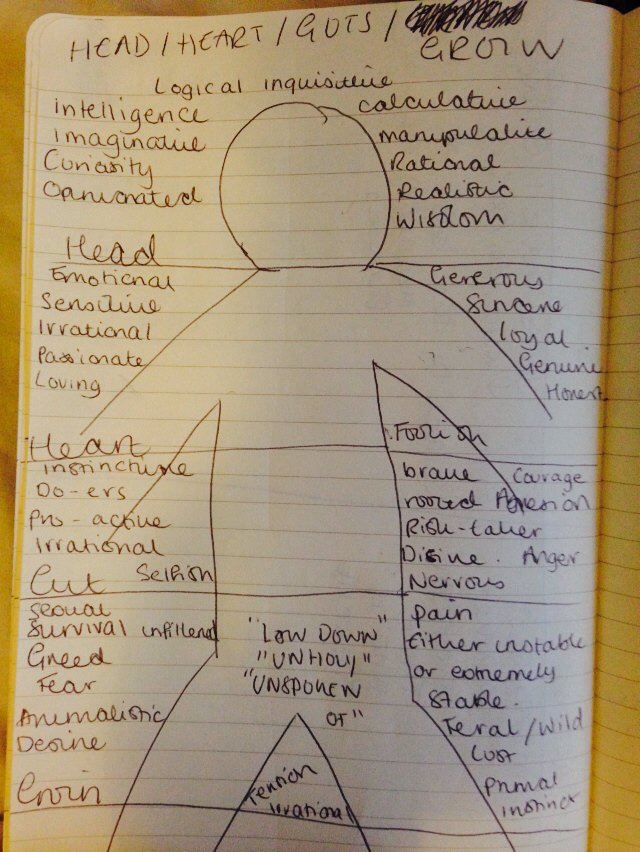 HEAD / HEART / GUTS /
GROIN
Logical inquisitive
intelligence
Imaginative
Curiosity
Opinionated
calculative
manipulative
Rational
Realistic
Wisdom
Head
Emotional
Sensitive
Irrational
Passionate
Loving
Generous
Sincere
Loyal
Genuine
Honest
Heart
Foolish
Instinctive
Do-ers
Pro-active
Irrational
Selfish
brave Courage
rooted Agression
Risk-taker
Disire. Anger
Nervous
Gut
Sexual
Survival unfiltered
Greed
Fear
Animalistic
Desire
"LOW DOWN"
"UNHOLY"
"UNSPOKEN
OF"
pain
Either unstable
or extremely
stable.
Feral / Wild
Lust
Primal
instinct
Groin
Tension
irrational